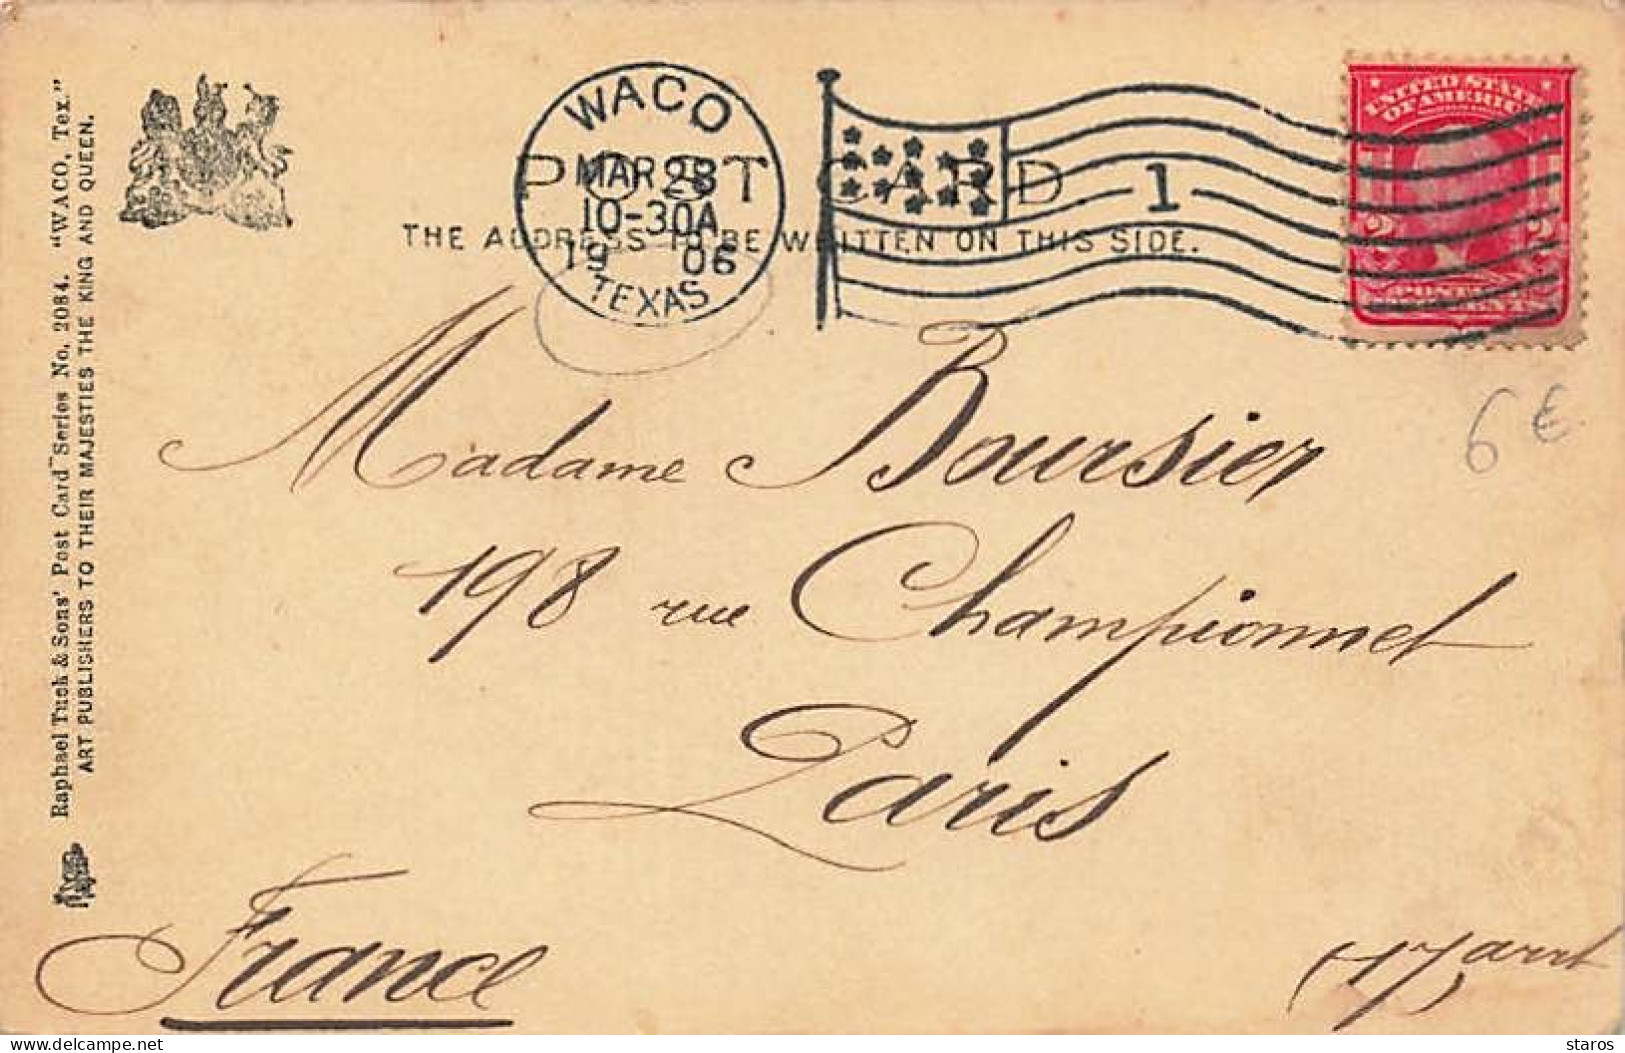 WACO
MAR 28
10-30A
1906
TEXAS
1
POST CARD
THE ADDRESS TO BE WRITTEN ON THIS SIDE.
UNITED STATES
OF AMERICA
2 2
Raphael Tuck & Sons' Post Card Series No. 2084. "WACO, Tex."
ART PUBLISHERS TO THEIR MAJESTIES THE KING AND QUEEN.
6 €
Madame Boursier
198 rue Championnet
Paris
France
(17) arrt
delcampe.net
staros